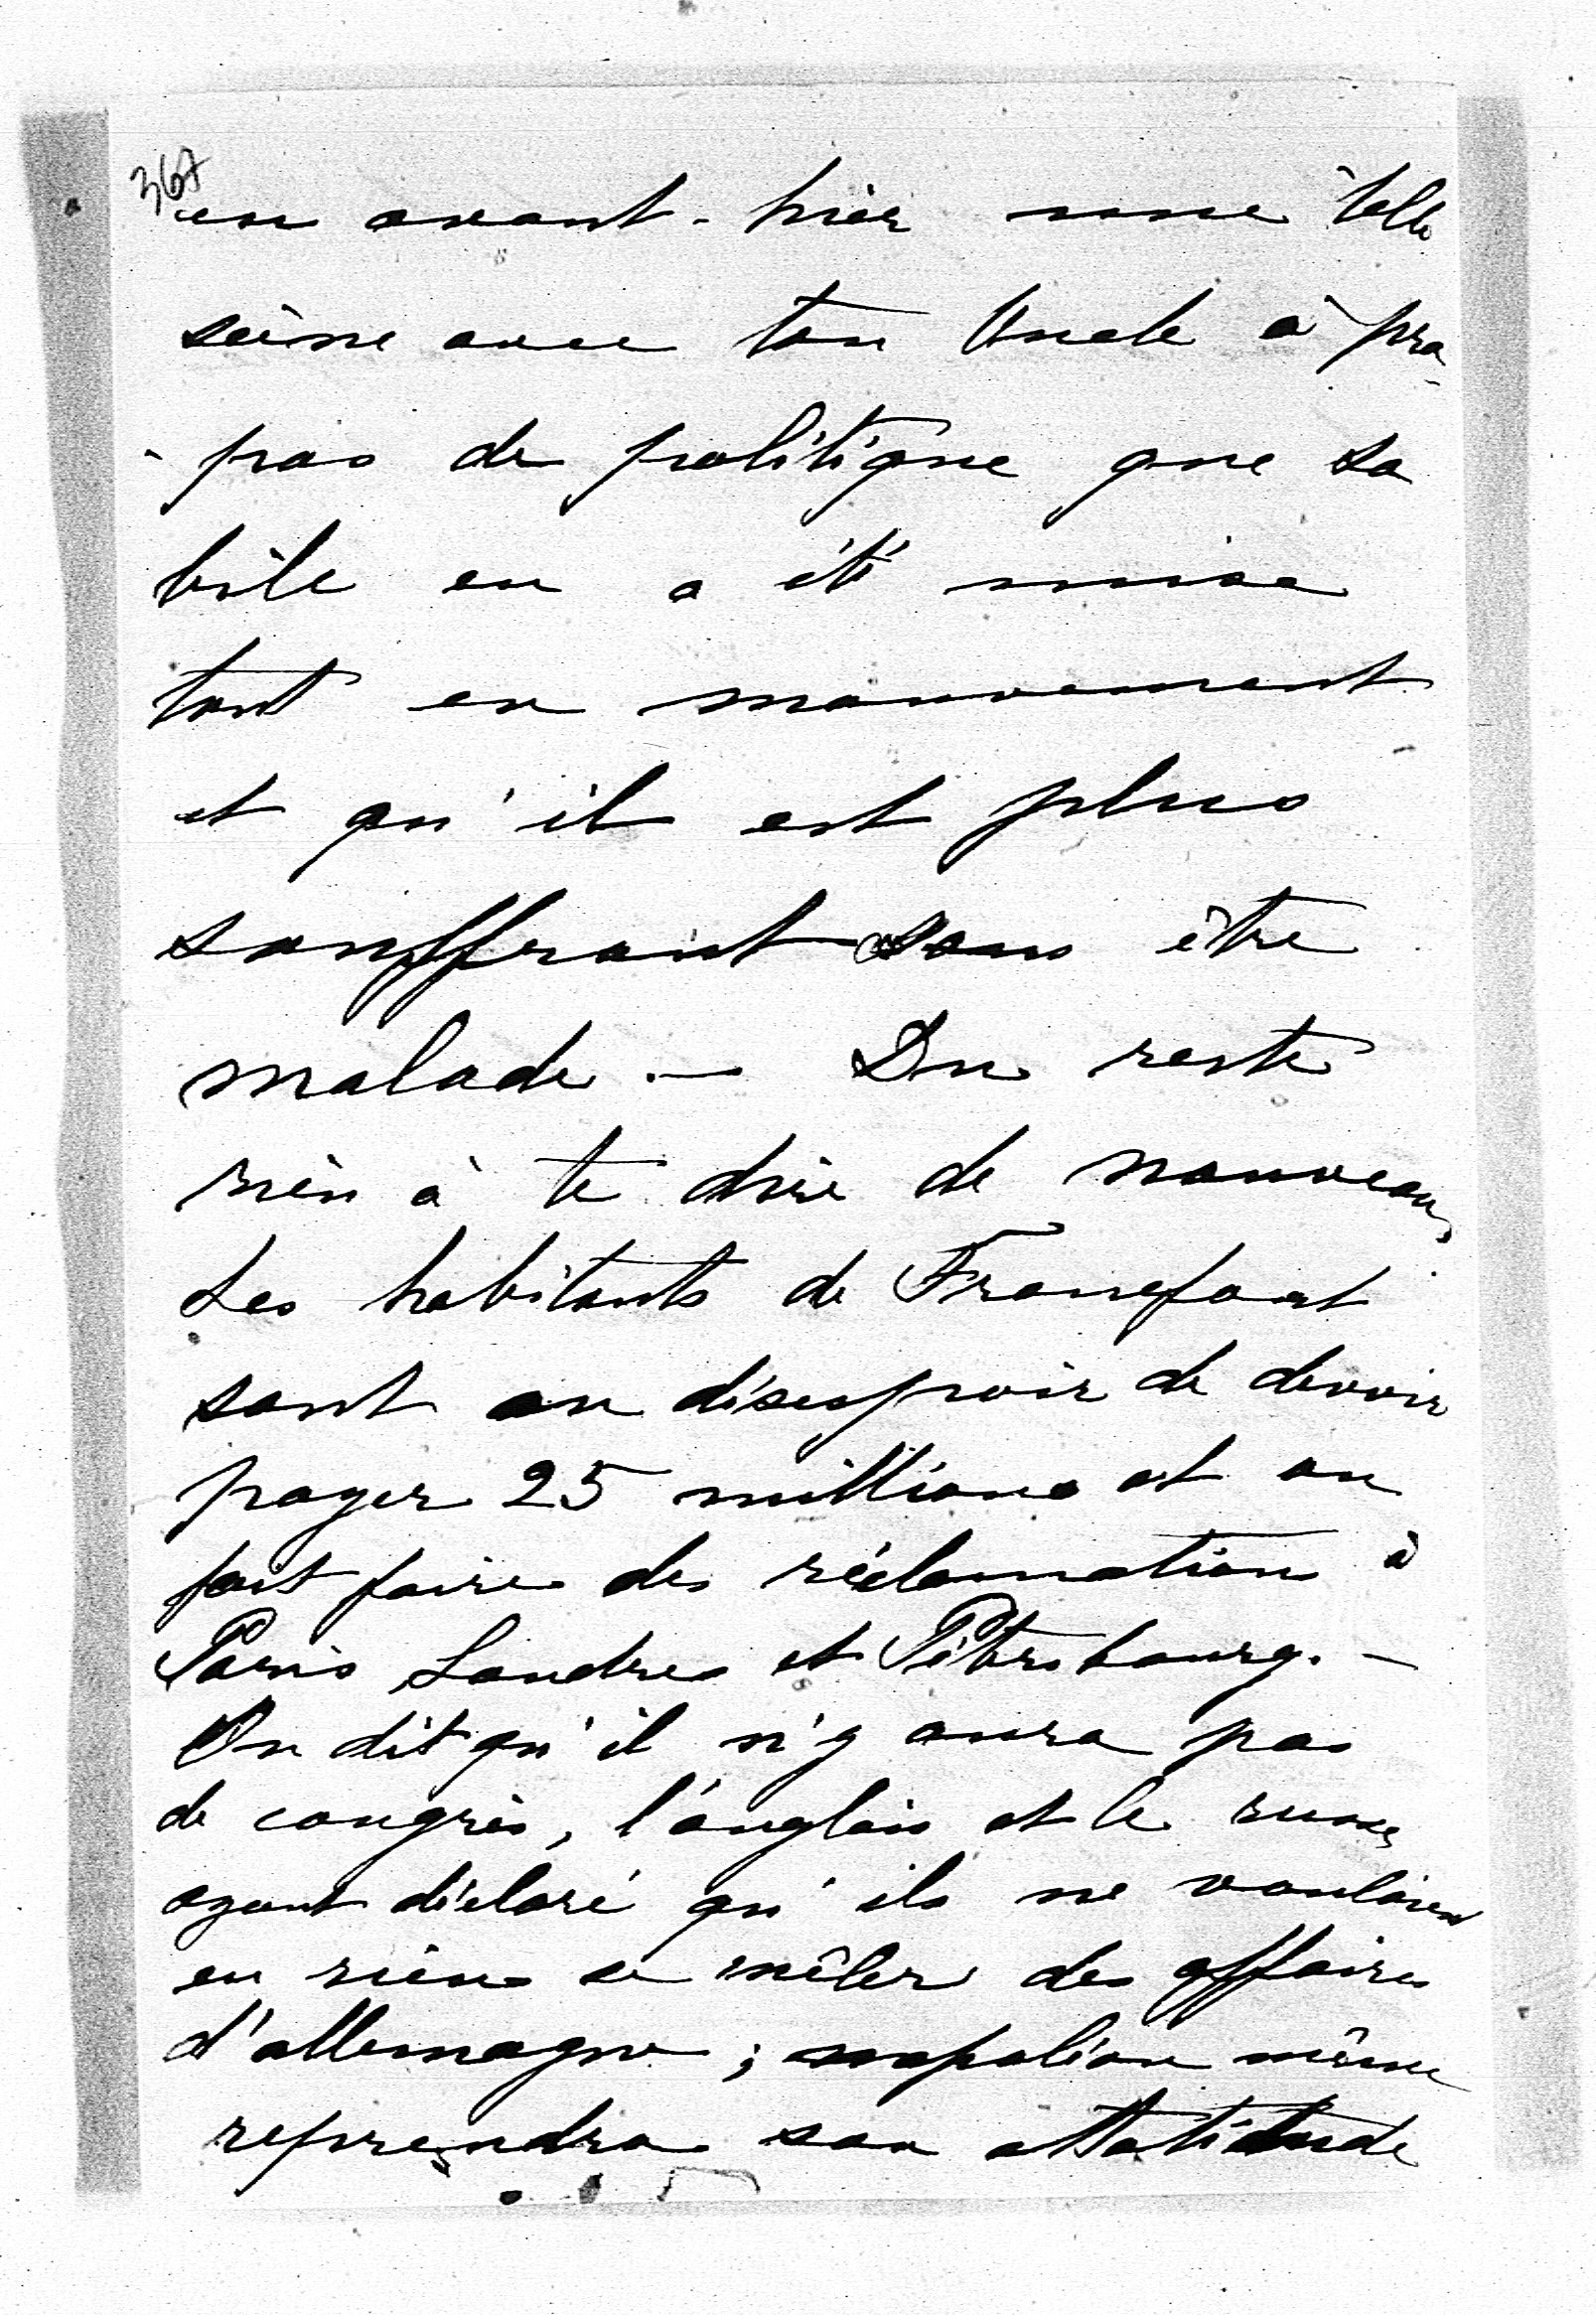 367
eu avant-hier une telle
scène avec ton Oncle à pro-
-pos de politique que sa
bile en a été mise
tout en mouvement
et qu'il est plus
souffrant sans être
malade. — Du reste
rien à te dire de nouveau,
Les habitants de Francfort
sont au désespoir de devoir
payer 25 millions et on
fait faire des réclamations à
Paris Londres et Pétersbourg. —
On dit qu'il n'y aura pas
de congrès, l'anglais et le russe
ayant déclaré qu'ils ne voulaient
en rien se mêler des affaires
d'allemagne ; napoléon même
reprendra son attatitude